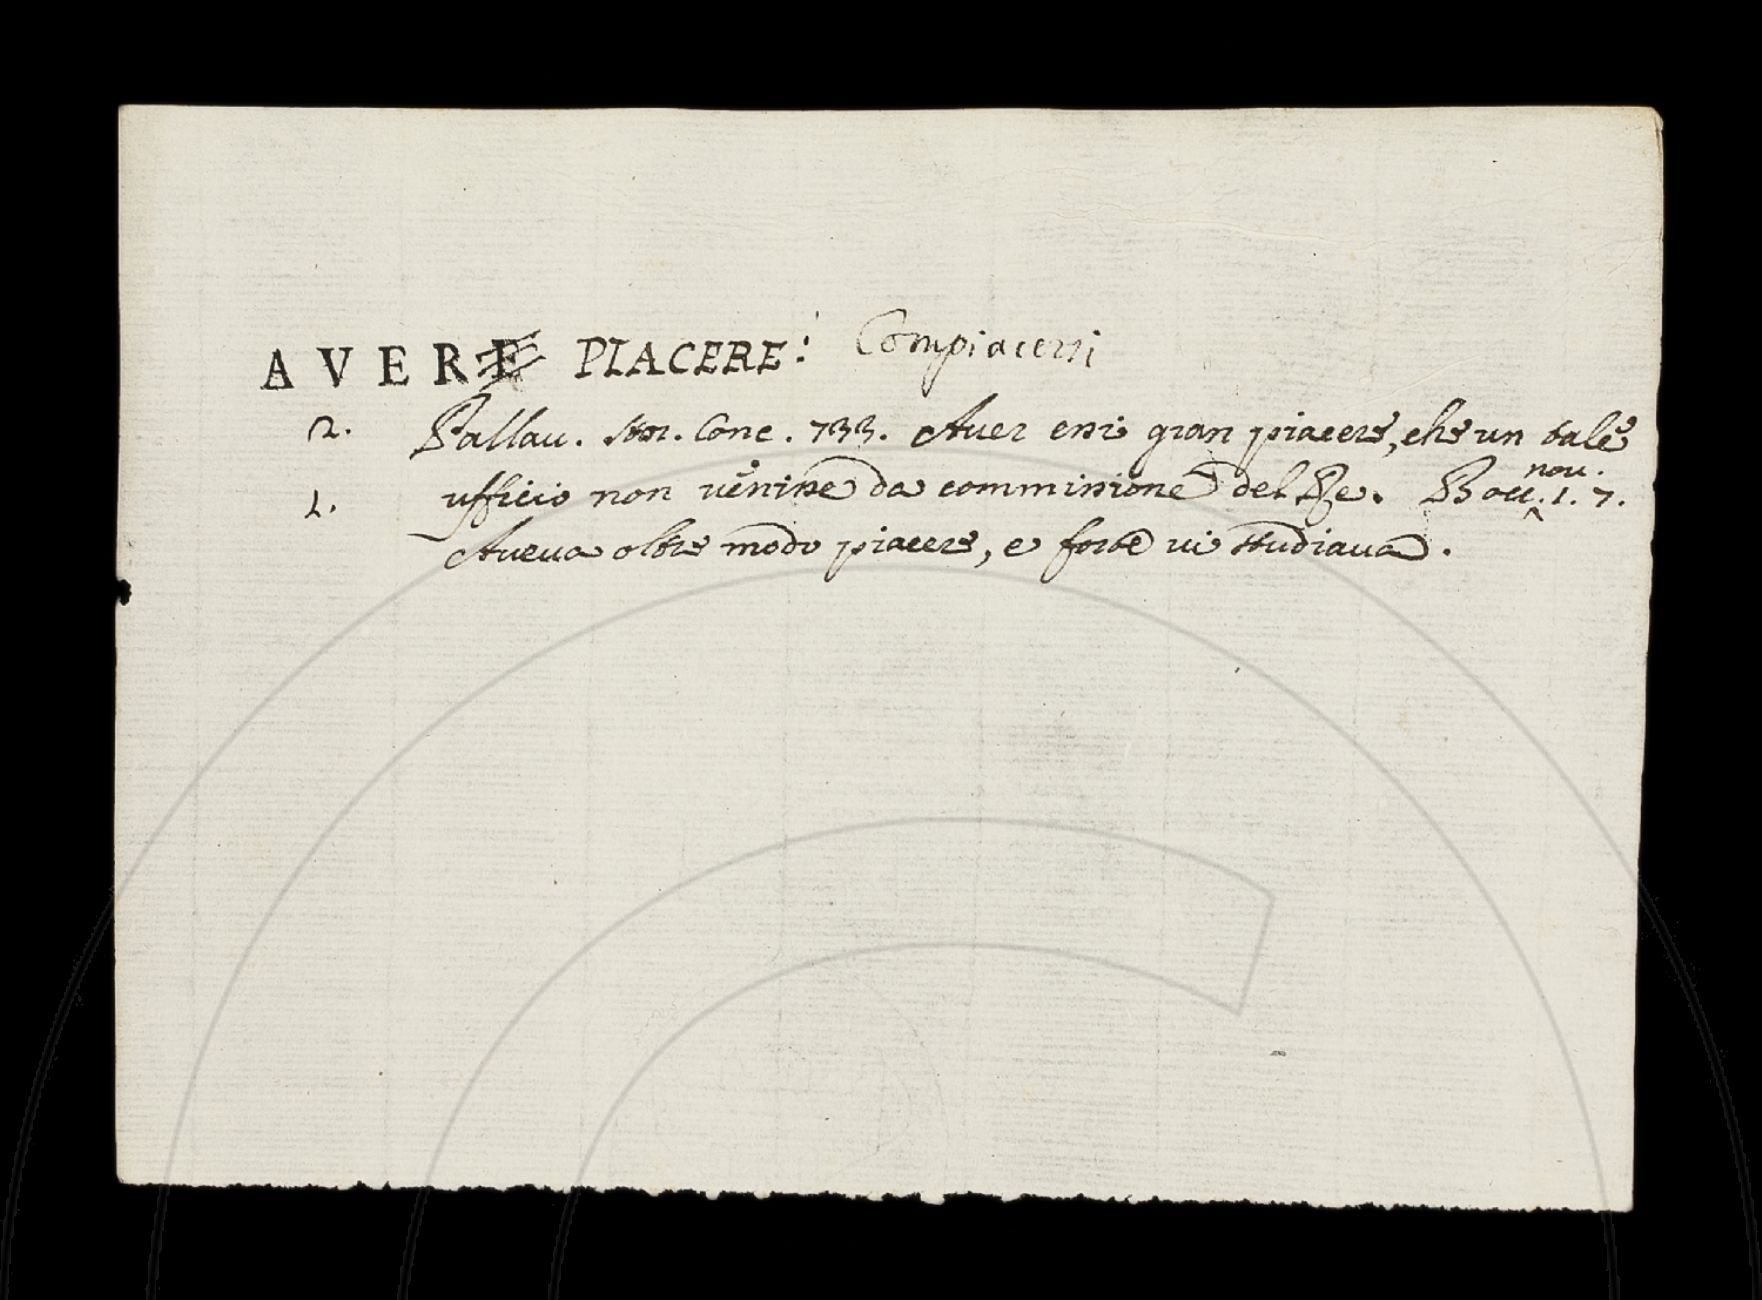 AVERE PIACERE: Compiacersi
2. Pallau. Stor. Conc. 733. Auer essi gran piacere, che un tale
1. ufficio non venisse da commissione del Re. Bocc. nov. 1. 7.
Aueua oltre modo piacere, e forte vi studiaua.